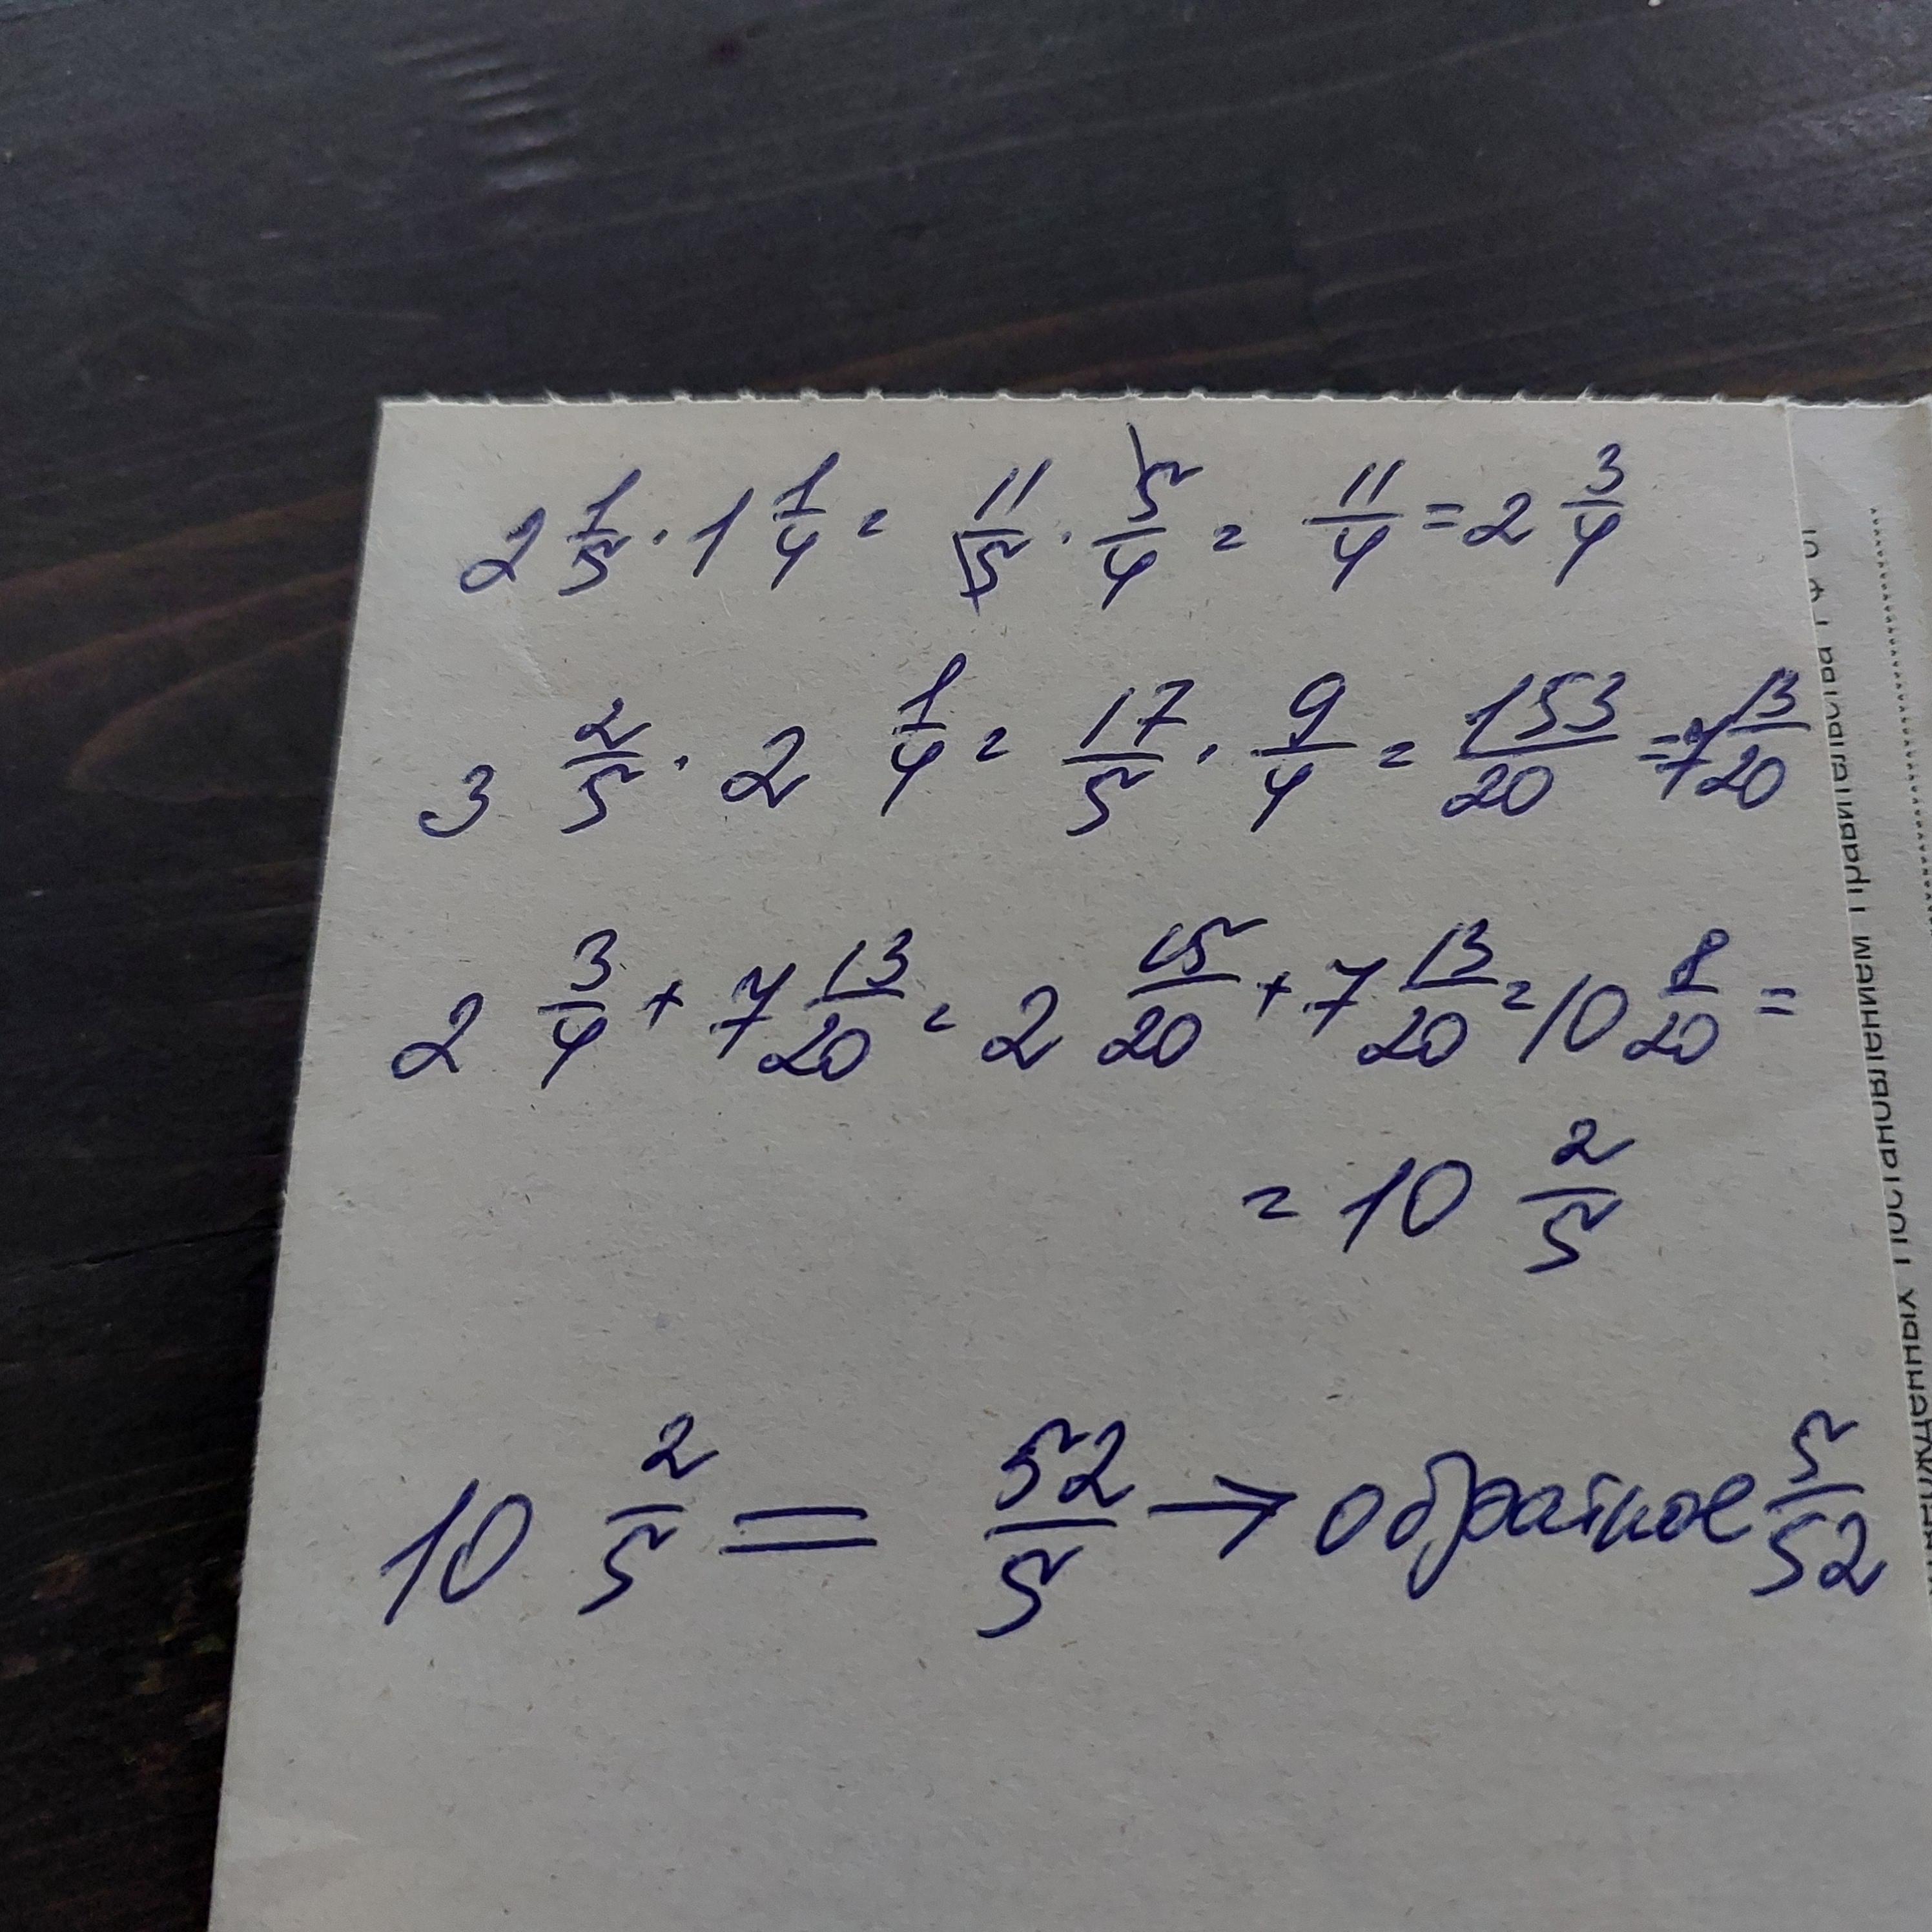 2 1/5 · 1 1/4 = 11/5 · 5/4 = 11/4 = 2 3/4
3 2/5 · 2 1/4 = 17/5 · 9/4 = 153/20 = 7 13/20
2 3/4 + 7 13/20 = 2 15/20 + 7 13/20 = 10 8/20 =
= 10 2/5
10 2/5 = 52/5 → обратное 5/52